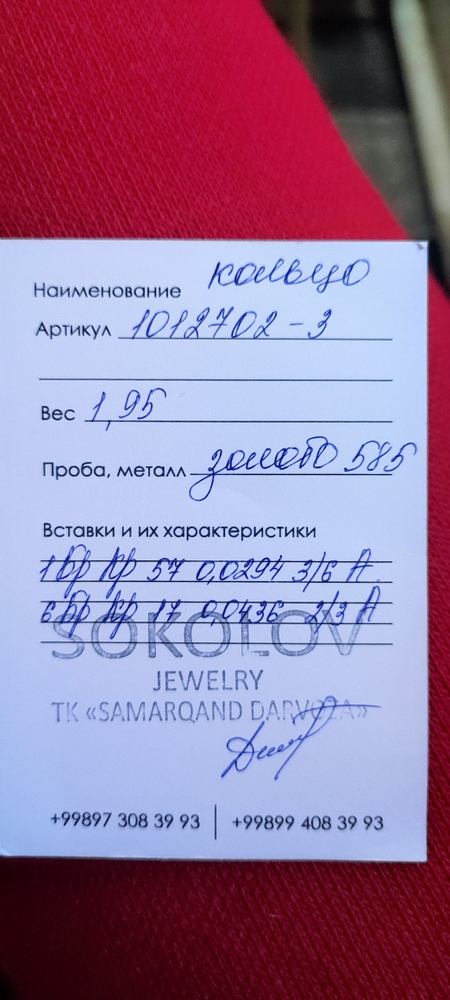 Наименование кольцо
Артикул 1012702-3
Вес 1,95
Проба, металл золото 585
Вставки и их характеристики
1 Бр Кр 57 0,0294 3/6 А
6 Бр Кр 17 0,0436 2/3 А
SOKOLOV
JEWELRY
ТК «SAMARQAND DARVOZA»
+99897 308 39 93 | +99899 408 39 93